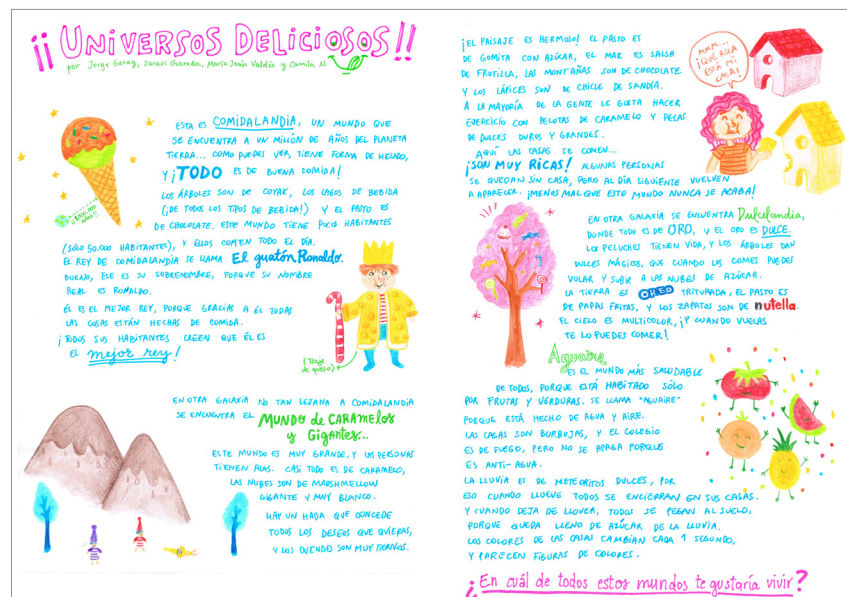 ¡¡UNIVERSOS DELICIOSOS!!
por Jorge Garay, Saravi Guzmán, María Jesús Valdés y Camila N.
ESTA ES COMIDALANDIA, UN MUNDO QUE
SE ENCUENTRA A UN MILLÓN DE AÑOS DEL PLANETA
TIERRA... COMO PUEDES VER, TIENE FORMA DE HELADO,
Y ¡TODO ES DE BUENA COMIDA!
LOS ÁRBOLES SON DE COYAK, LOS LAGOS DE BEBIDA
(¡DE TODOS LOS TIPOS DE BEBIDA!) Y EL PASTO ES
DE CHOCOLATE. ESTE MUNDO TIENE POCOS HABITANTES
(SÓLO 50.000 HABITANTES), Y ELLOS COMEN TODO EL DÍA.
EL REY DE COMIDALANDIA SE LLAMA El guatón Ronaldo.
BUENO, ESE ES SU SOBRENOMBRE, PORQUE SU NOMBRE
REAL ES RONALDO.
ÉL ES EL MEJOR REY, PORQUE GRACIAS A ÉL TODAS
LAS COSAS ESTÁN HECHAS DE COMIDA.
¡TODOS SUS HABITANTES CREEN QUE ÉL ES
EL mejor rey!
(Traje
de queso)
EN OTRA GALAXIA NO TAN LEJANA A COMIDALANDIA
SE ENCUENTRA EL MUNDO de CARAMELOS
y Gigantes...
ESTE MUNDO ES MUY GRANDE, Y LAS PERSONAS
TIENEN ALAS. CASI TODO ES DE CARAMELO,
LAS NUBES SON DE MARSHMELLOW
GIGANTE Y MUY BLANCO.
HAY UN HADA QUE CONCEDE
TODOS LOS DESEOS QUE QUIERAS,
Y LOS DUENDES SON MUY TIERNOS.
¡EL PAISAJE ES HERMOSO! EL PASTO ES
DE GOMITA CON AZÚCAR, EL MAR ES SALSA
DE FRUTILLA, LAS MONTAÑAS SON DE CHOCOLATE
Y LOS LÁPICES SON DE CHICLE DE SANDÍA.
A LA MAYORÍA DE LA GENTE LE GUSTA HACER
EJERCICIO CON PELOTAS DE CARAMELO Y PESAS
DE DULCES DUROS Y GRANDES.
AQUÍ LAS CASAS SE COMEN...
¡SON MUY RICAS! ALGUNAS PERSONAS
SE QUEDAN SIN CASA, PERO AL DÍA SIGUIENTE VUELVEN
A APARECER. ¡MENOS MAL QUE ESTE MUNDO NUNCA SE ACABA!
MMM...
¡QUE RICA
ESTÁ MI
CASA!
EN OTRA GALAXIA SE ENCUENTRA Dulcelandia,
DONDE TODO ES DE ORO, Y EL ORO ES DULCE.
LOS PELUCHES TIENEN VIDA, Y LOS ÁRBOLES DAN
DULCES MÁGICOS, QUE CUANDO LOS COMES PUEDES
VOLAR Y SUBIR A LAS NUBES DE AZÚCAR.
LA TIERRA ES OREO TRITURADA, EL PASTO ES
DE PAPAS FRITAS, Y LOS ZAPATOS SON DE nutella.
EL CIELO ES MULTICOLOR, ¡Y CUANDO VUELAS
TE LO PUEDES COMER!
Aguaire
ES EL MUNDO MÁS SALUDABLE
DE TODOS, PORQUE ESTÁ HABITADO SÓLO
POR FRUTAS Y VERDURAS. SE LLAMA "AGUAIRE"
PORQUE ESTÁ HECHO DE AGUA Y AIRE.
LAS CASAS SON BURBUJAS, Y EL COLEGIO
ES DE FUEGO, PERO NO SE APAGA PORQUE
ES ANTI-AGUA.
LA LLUVIA ES DE METEORITOS DULCES, POR
ESO CUANDO LLUEVE TODOS SE ENCIERRAN EN SUS CASAS.
Y CUANDO DEJA DE LLOVER, TODOS SE PEGAN AL SUELO,
PORQUE QUEDA LLENO DE AZÚCAR DE LA LLUVIA.
LOS COLORES DE LAS CASAS CAMBIAN CADA 1 SEGUNDO,
Y PARECEN FIGURAS DE COLORES.
¿En cuál de todos estos mundos te gustaría vivir?